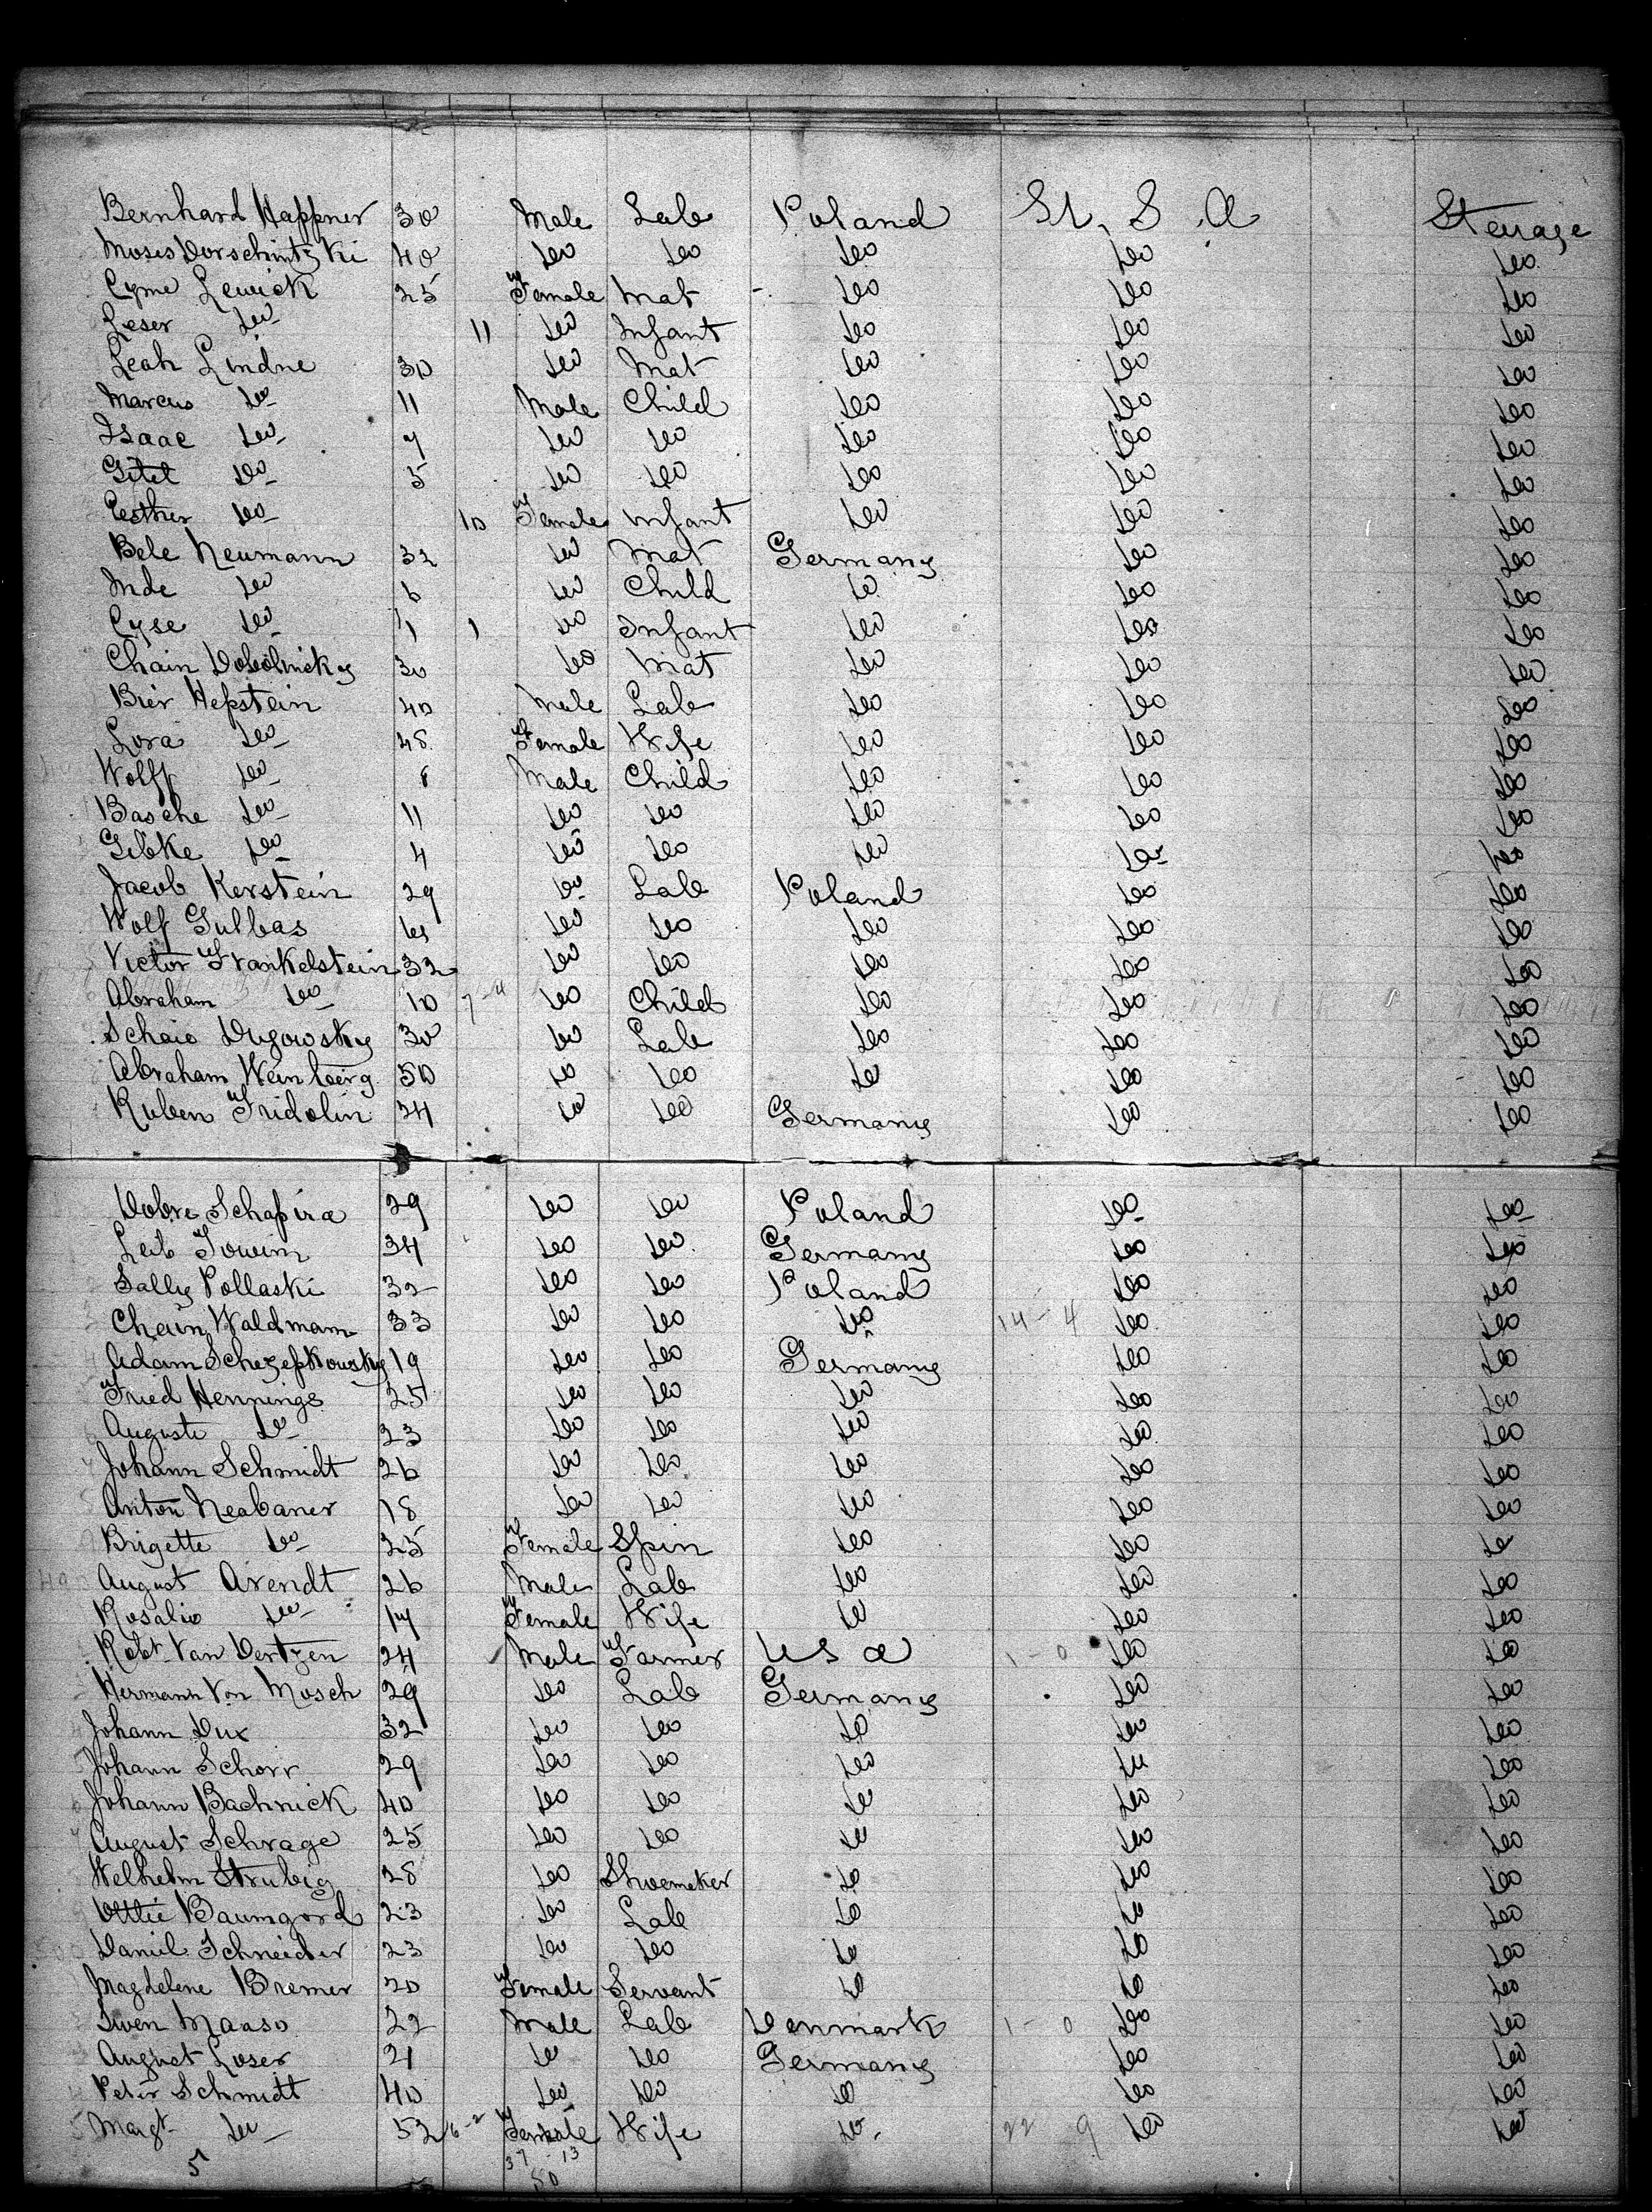 Bernhard Happner 30 Male Lab Poland U. S. A Steerage
Moses Dorschintzki 40 do do do do do
Cyme Lewick 25 Female Mat do do do
Leser do 11 do Infant do do do
Leah Lindne 30 do Mat do do do
Marcus do 11 Male Child do do do
Isaac do 7 do do do do do
Gitel do 5 do do do do do
Esther do 10 Female Infant do do do
Bele Neumann 32 do Mat Germany do do
Inde do 6 do Child do do do
Cyse do 1 1 do Infant do do do
Chain 30 do Mat do do do
Brer Hepstein 40 Male Lab do do do
Lora do 48 Female Wife do do do
Wolff do 8 Male Child do do do
Basche do 11 do do do do do
Gibke do 4 do do do do do
Jacob Kerstein 29 do Lab Poland do do
Wolf Gulbas do do do do do
Victor Frankelstein 32 do do do do do
Abraham do 10 7-4 do Child do do do
Schaie Dugowsky 30 do Lab do do do
Abraham Weinberg 50 do do do do do
Ruben Fridolin 34 do do Germany do do
Dobre Schapira 29 do do Poland do do
Leib Iowim 34 do do Germany do do
Sally Pollaski 32 do do Poland do do
Chain Waldmam 33 do do do 14-4 do do
Adam Schezepkowsky 19 do do Germany do do
Fried Hennings 25 do do do do do
Auguste do 23 do do do do do
Johann Schmidt 26 do do do do do
Anton Neabaner 18 do do do do do
Brigette do 25 Female Spin do do do
40 August Arendt 26 Male Lab do do do
Rosalie do 17 Female Wife do do do
Robt Van Oertzen 24 Male Farmer U S A 1-0 do do
Hermann Von Mosch 29 do Lab Germany do do
Johann Dux 32 do do do do do
Johann Schorr 29 do do do do do
Johann Bachnick 40 do do do do do
August Schrage 25 do do do do do
Welhelm Strubig 28 do Shoemeker do do do
Ottlie Baumgord 23 do Lab do do do
Daniel Schneider 23 do do do do do
Magdelene Bremer 20 Female Servant do do do
Iwen Maaso 22 Male Lab Denmark 1-0 do do
August Loser 21 do do Germany do do
Peter Schmidt 40 do do do do do
Margt do 52 16-2 Female Wife do 22 9 do do
5 37 13
50